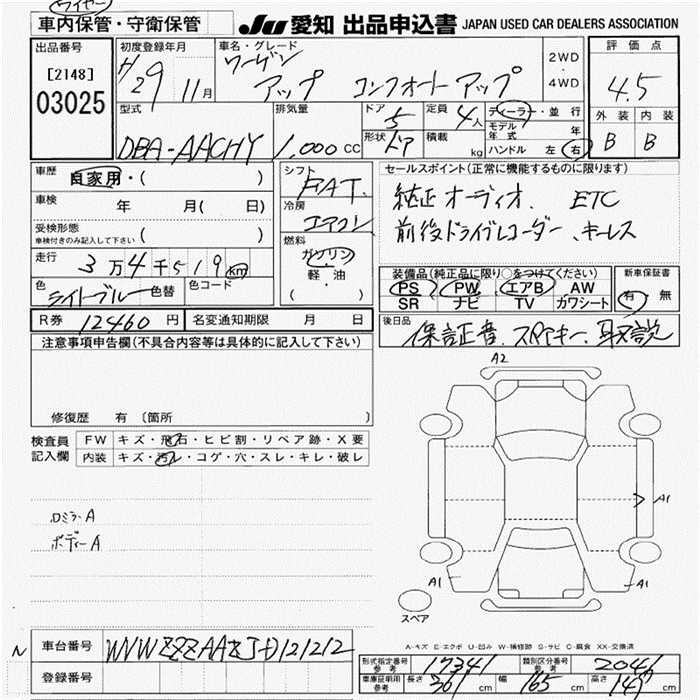 ワイヤー
車内保管・守衛保管
JU 愛知 出品申込書 JAPAN USED CAR DEALERS ASSOCIATION
出品番号
[2148]
03025
初度登録年月
H/29 11月
車名・グレード
ワーゲン
アップ コンフォートアップ
2WD
・
4WD
評価点
4.5
外装 内装
B B
型式
DBA-AACHY
排気量
1,000 CC
ドア
5
定員
4人
形状
ドア
積載
kg
ディーラー・並行
モデル年式 年
ハンドル 左 右
車歴
自家用・( )
車検
年 月( 日)
受検形態
車検付きのみ記入して下さい ( )
走行
3万4千519km
色
ライトブルー 色替
色コード
R券 12460円
名変通知期限 月 日
シフト
FAT.
冷房
エアコン
燃料
ガソリン
・
軽・油
( )
セールスポイント(正常に機能するものに限ります)
純正オーディオ. ETC
前後ドライブレコーダー、キーレス
装備品(純正品に限り○をつけてください)
PS PW エアB AW
SR ナビ TV カワシート
新車保証書
有・無
後日品
保証書、スペアキー、取説
注意事項申告欄(不具合内容等は具体的に記入して下さい)
修復歴 有 〔箇所
検査員
記入欄
FW キズ・飛石・ヒビ割・リペア跡・X要
内装 キズ・汚レ・コゲ・穴・スレ・キレ・破レ
ロミラーA
ボディーA
A2
A1
A1
A1
スペア
A-キズ E-エクボ U-凹み W-補修跡 S-サビ C-腐食 XX-交換済
N
車台番号 WVWZZZAAZJD121212
登録番号
形式指定番号
参考
17341
類別区分番号
参考
2046
車庫証明用
参考
長さ 361cm 幅 165cm 高さ 149cm